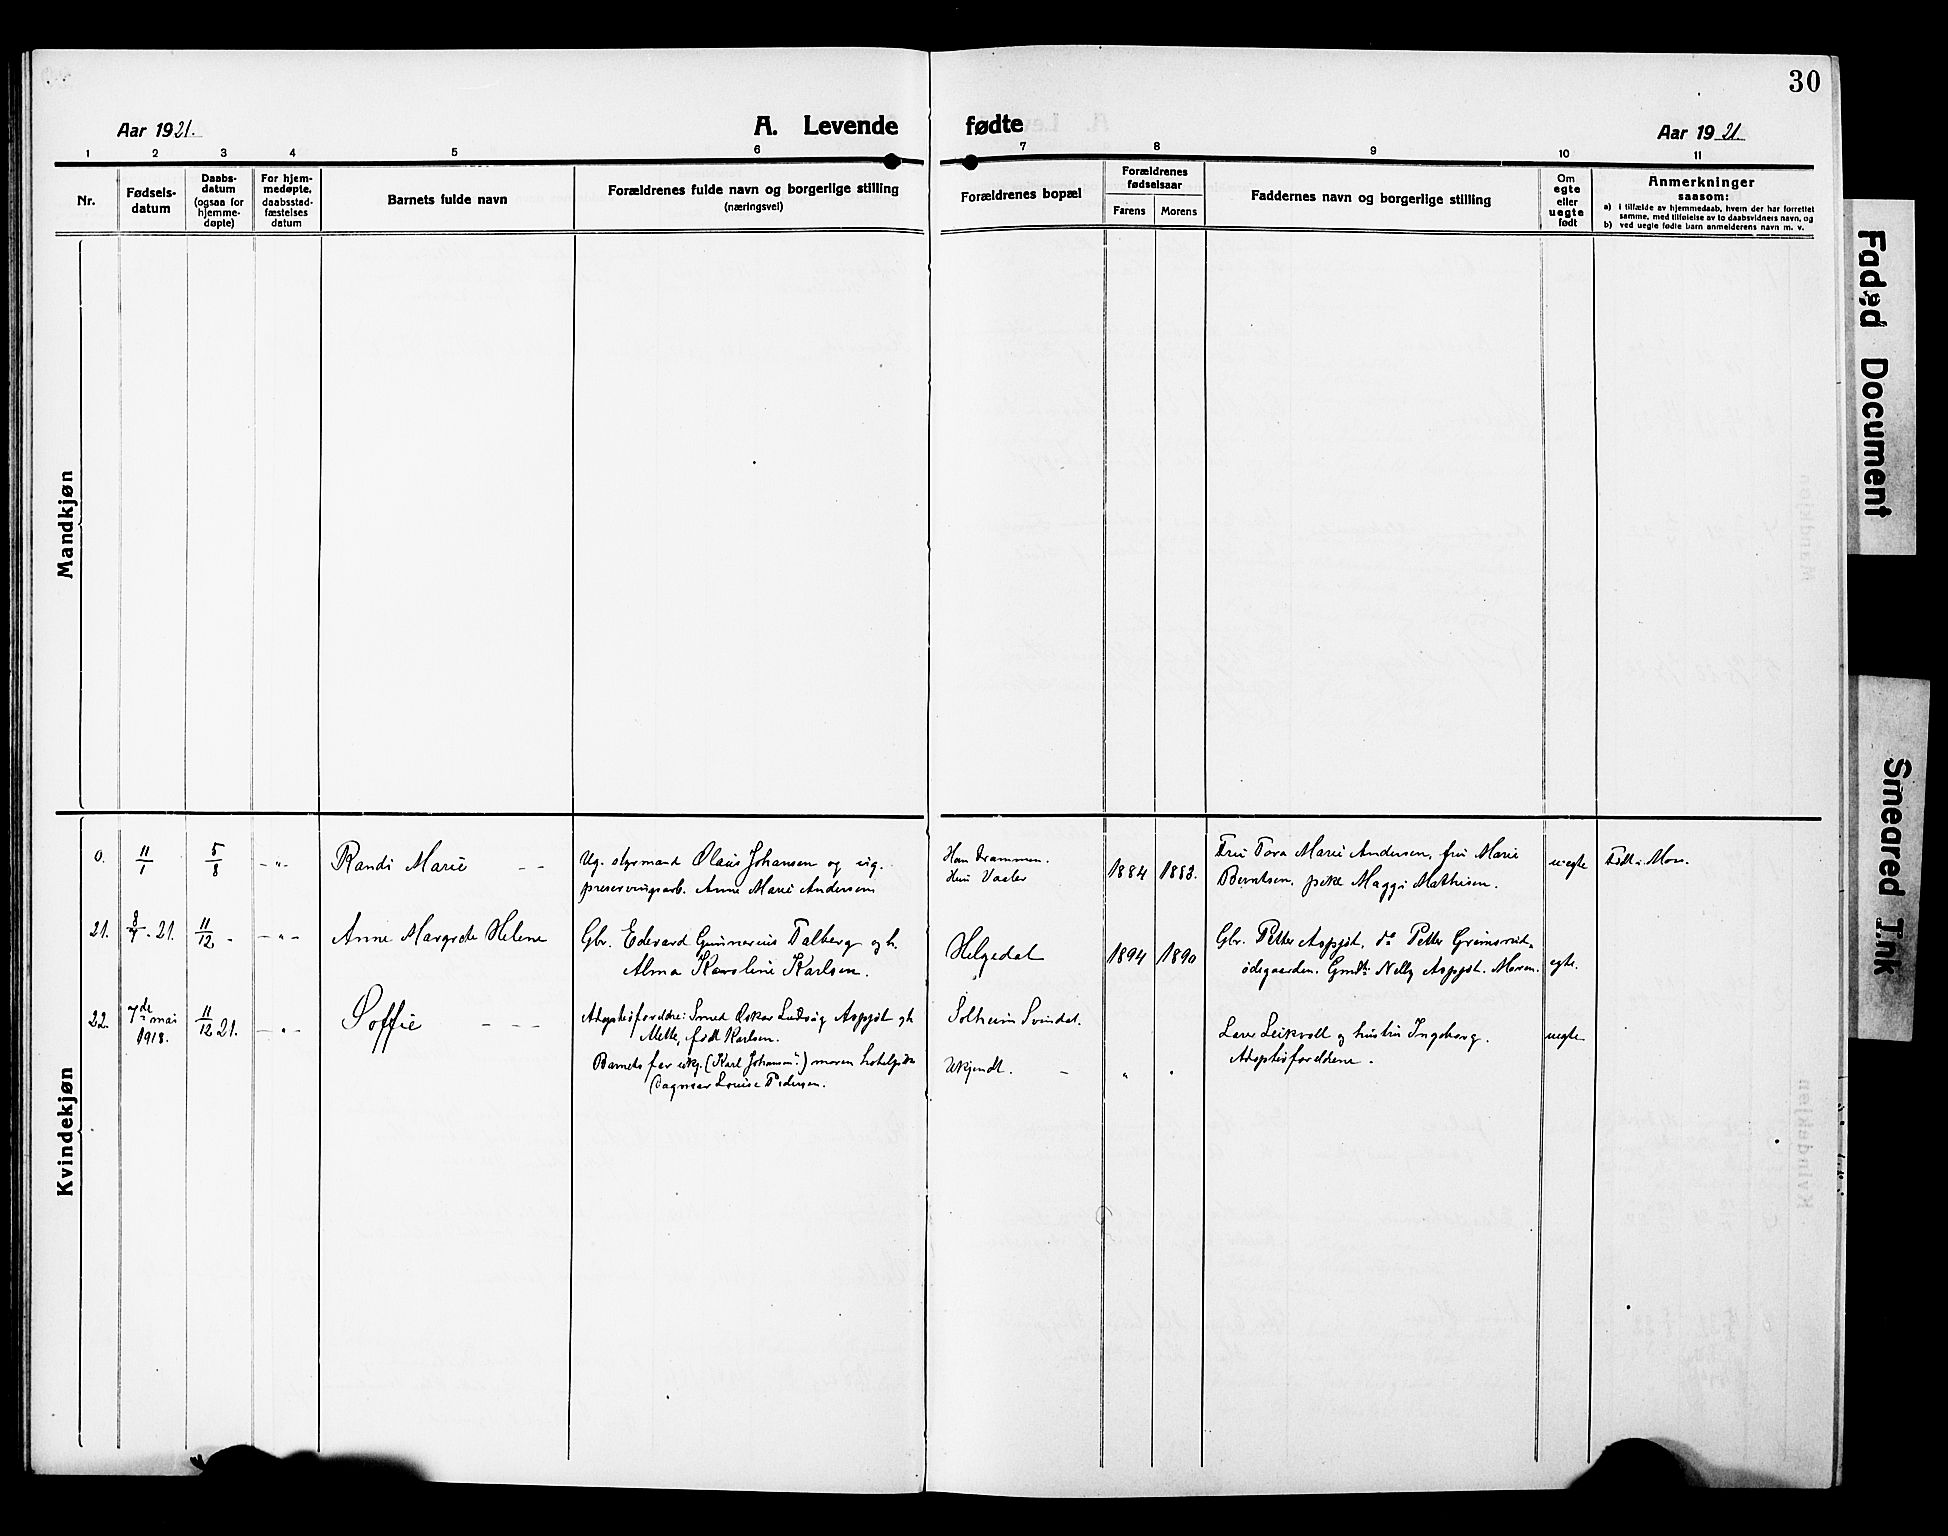 30
Aar 1921.
A. Levende fødte
Aar 1921.
1 2 3 4 5 6 7 8 9 10 11
Nr.
Fødsels-
datum
Daabs-
datum
(ogsaa for
hjemme-
døpte)
For hjem-
medøpte,
daabsstad-
fæstelses
datum
Barnets fulde navn
Forældrenes fulde navn og borgerlige stilling
(næringsvei)
Forældrenes bopæl
Forældrenes
fødselsaar
Farens Morens
Faddernes navn og borgerlige stilling
Om
egte
eller
uegte
født
Anmerkninger
saasom:
a) i tilfælde av hjemmedaab, hvem der har forrettet
samme, med tilføielse av to daabsvidners navn, og
b) ved uegte fødte barn anmelderens navn m. v.
Mandkjøn
Kvindekjøn
0. 11/1 5/8 - " - Randi Marie - -
Ug. styrmand Olaus Johansen og ug.
preserveringsarb. Anne Marie Andersen
Han Drammen.
Hun Vaaler
1884 1883.
Fru Tora Marie Andersen, fru Marie
Berntsen, pike Maggi Mathisen.
uegte
Født i Moss.
21. 8/7 - 21. 11/12 - - " - Anne Margrete Helene
Gbr. Edevard Gunnerius Talberg og h.
Alma Karoline Karlsen.
Helgedal
1894 1890
Gbr. Petter Aspjøt, do Petter Grimsrud-
ødegaarden. Gmdtr Nelly Aspjøt. Moren.
egte.
22. 7de mai
1918.
11/12 21. - " - Soffie - - -
Adoptivforeldre: Smed Oskar Ludvig Aspjøt og h
Mette, født Karlsen.
Barnets far ukj. (Karl Johansen?) moren hotelpike
Dagmar Louise Pedersen.
Solheim Svindal.
Ukjendt. - " "
Lærer Leikvoll og hustru Ingeborg.
Adoptivforeldrene.
uegte
Faded Document
Smeared Ink